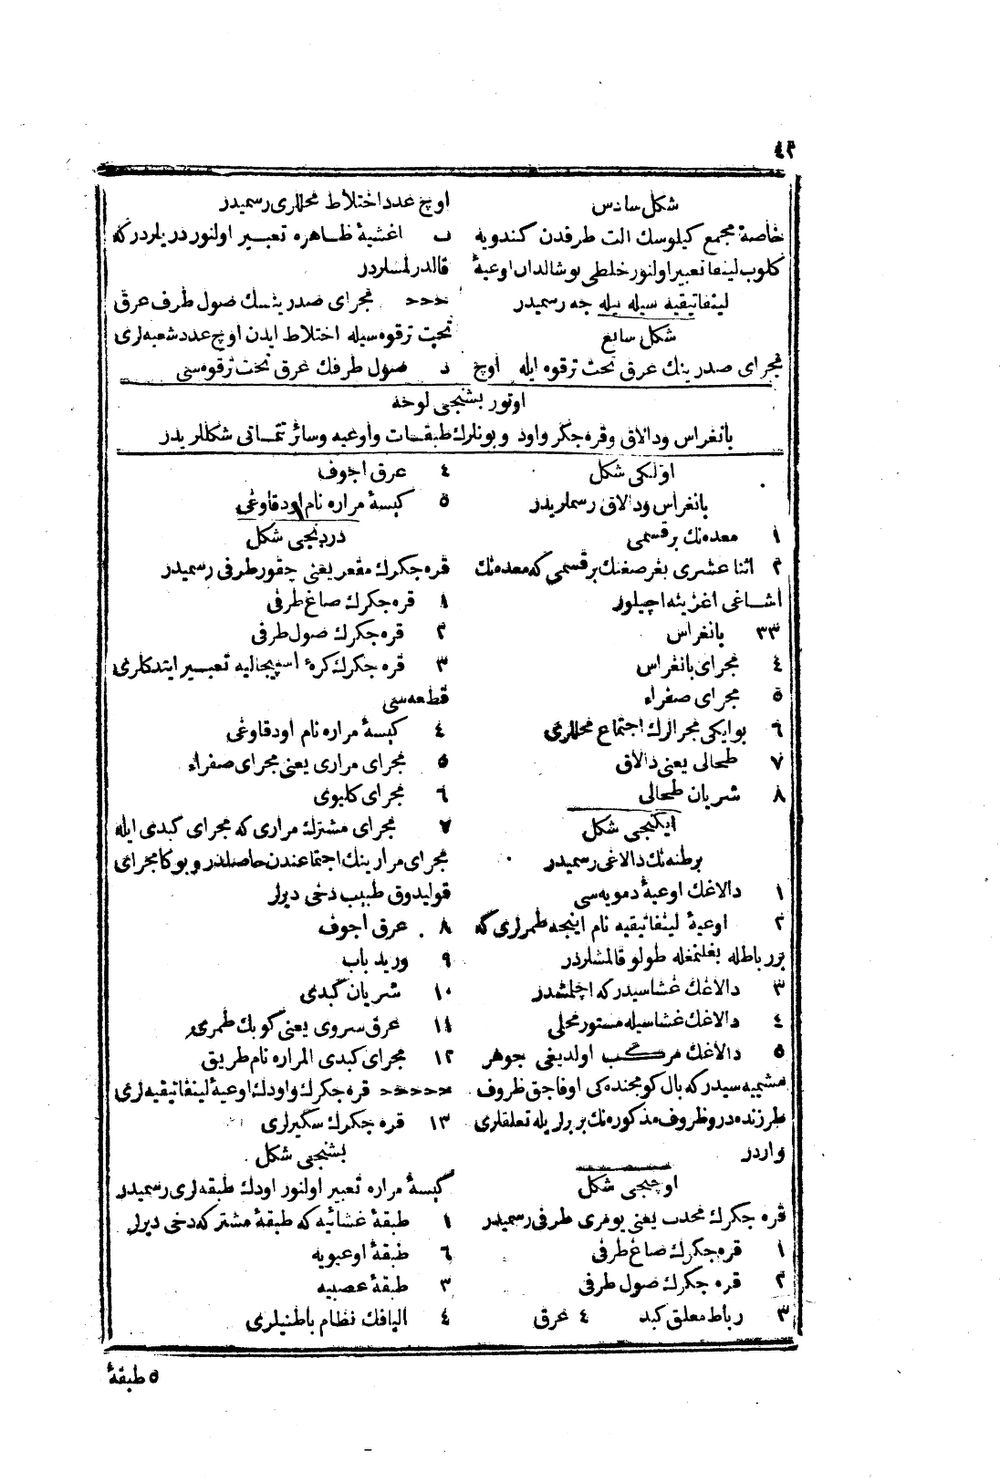 ٤٢
شكل سادس
خاصهٔ مجمع كيلوسك الت طرفدن كندويه
كلوب لينفا تعبير اولنور خلطى بوشالدان اوعيهٔ
لينفاتيقيه سيله بيله جه رسميدر
شكل سابع
مجراى صدرينك عرق تحت ترقوه ايله اوچ
اوچ عدد اختلاط محللرى رسميدر
ب اغشيهٔ ظاهره تعبير اولنور دريلردركه
قالدرلمشلردر
ججج مجراى صدرينك صول طرف عرق
تحت ترقوه سيله اختلاط ايدن اوچ عدد شعبه لرى
د صول طرفك عرق تحت ترقوه سى
اوتوز بشنجى لوحه
بانغراس ودالاق وقره جكر واود وبونلرك طبقات واوعيه وسائر تتماتى شكللريدر
اولكى شكل
بانغراس ودالاق رسملريدر
١ معده نك بر قسمى
٢ اثنا عشرى بغرصغنك بر قسمى كه معده نك
اشاغى اغزينه اچيلور
٣٣ بانغراس
٤ مجراى بانغراس
٥ مجراى صفراء
٦ بوايكى مجرالرك اجتماع محللرى
٧ طحالى يعنى دالاق
٨ شريان طحالى
ايكنجى شكل
برطنه نك دالاغى رسميدر
١ دالاغك اوعيهٔ دمويه سى
٢ اوعيهٔ لينفاتيقيه نام اينجه طمرلرى كه
برر باطله بغلنمغله طولو قالمشلردر
٣ دالاغك غشاسيدركه اچلمشدر
٤ دالاغك غشاسيله مستور محلى
٥ دالاغك مركب اولديغى جوهر
مشيميه سيدركه بال كومجنده كى اوفاجق ظروف
طرزنده در وظروف مذكوره نك بربرلريله تعلقلرى
واردر
اوچنجى شكل
قره جكرك محدب يعنى يومرى طرفى رسميدر
١ قره جكرك صاغ طرفى
٢ قره جكرك صول طرفى
٣ رباط معلق كبد ٤ عرق
٤ عرق اجوف
٥ كيسهٔ مراره نام اود قاوغى
دردنجى شكل
قره جكرك مقعر يعنى چقور طرفى رسميدر
١ قره جكرك صاغ طرفى
٢ قره جكرك صول طرفى
٣ قره جكرك كرهٔ اسپيجاليه تعبير ايتدكلرى
قطعه سى
٤ كيسهٔ مراره نام اود قاوغى
٥ مجراى مرارى يعنى مجراى صفراء
٦ مجراى كليوى
٧ مجراى مشترك مرارى كه مجراى كبدى ايله
مجراى مرارينك اجتماعندن حاصلدر وبوكا مجراى
قوليدوق طبيب دخى ديرلر
٨ عرق اجوف
٩ وريد باب
١٠ شريان كبدى
١١ عرق سروى يعنى كوبك طمرى
١٢ مجراى كبدى المراره نام طريق
ججججج قره جكرك واودك اوعيهٔ لينفاتيقيه لرى
١٣ قره جكرك سكيرلرى
بشنجى شكل
كيسهٔ مراره تعبير اولنور اودك طبقه لرى رسميدر
١ طبقهٔ غشائيه كه طبقهٔ مشتركه دخى ديرلر
٦ طبقهٔ اوعيويه
٣ طبقهٔ عصبيه
٤ اليافك نظام باطنيلرى
٥ طبقهٔ